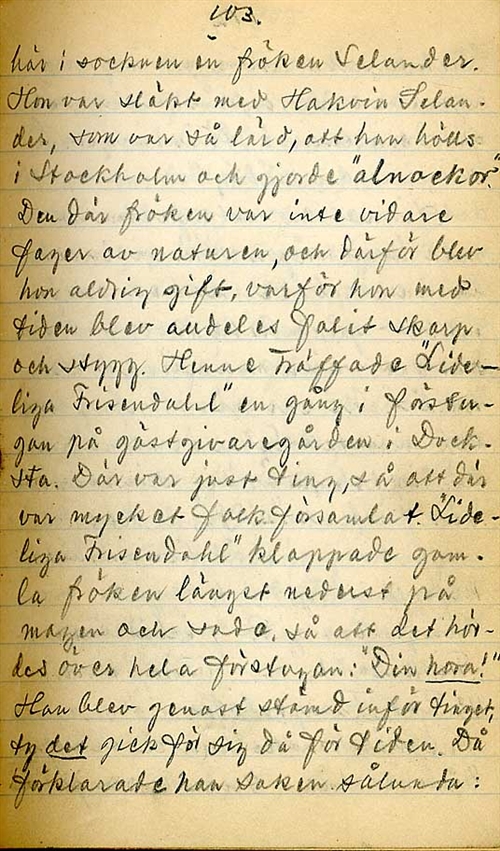 103.
här i socknen en fröken Selander.
Hon var släkt med Hakvin Selan-
der, som var så lärd, att han hölls
i Stockholm och gjorde "alnackor."
Den där fröken var inte vidare
fager av naturen, och därför blev
hon aldrig gift, varför hon med
tiden blev andeles falit skarp
och stygg. Henne träffade "Lide-
liga Frisendahl" en gång i förstu-
gan på gästgivaregården i Dock-
sta. Där var just ting, så att där
var mycket folk församlat. "Lide-
liga Frisendahl" klappade gam-
la fröken längst nederst på
magen och sade, så att det hör-
des över hela förstugan: "Din hora!"
Han blev genast stämd inför tinget,
ty det gick för sig då för tiden. Då
förklarade han saken sålunda: